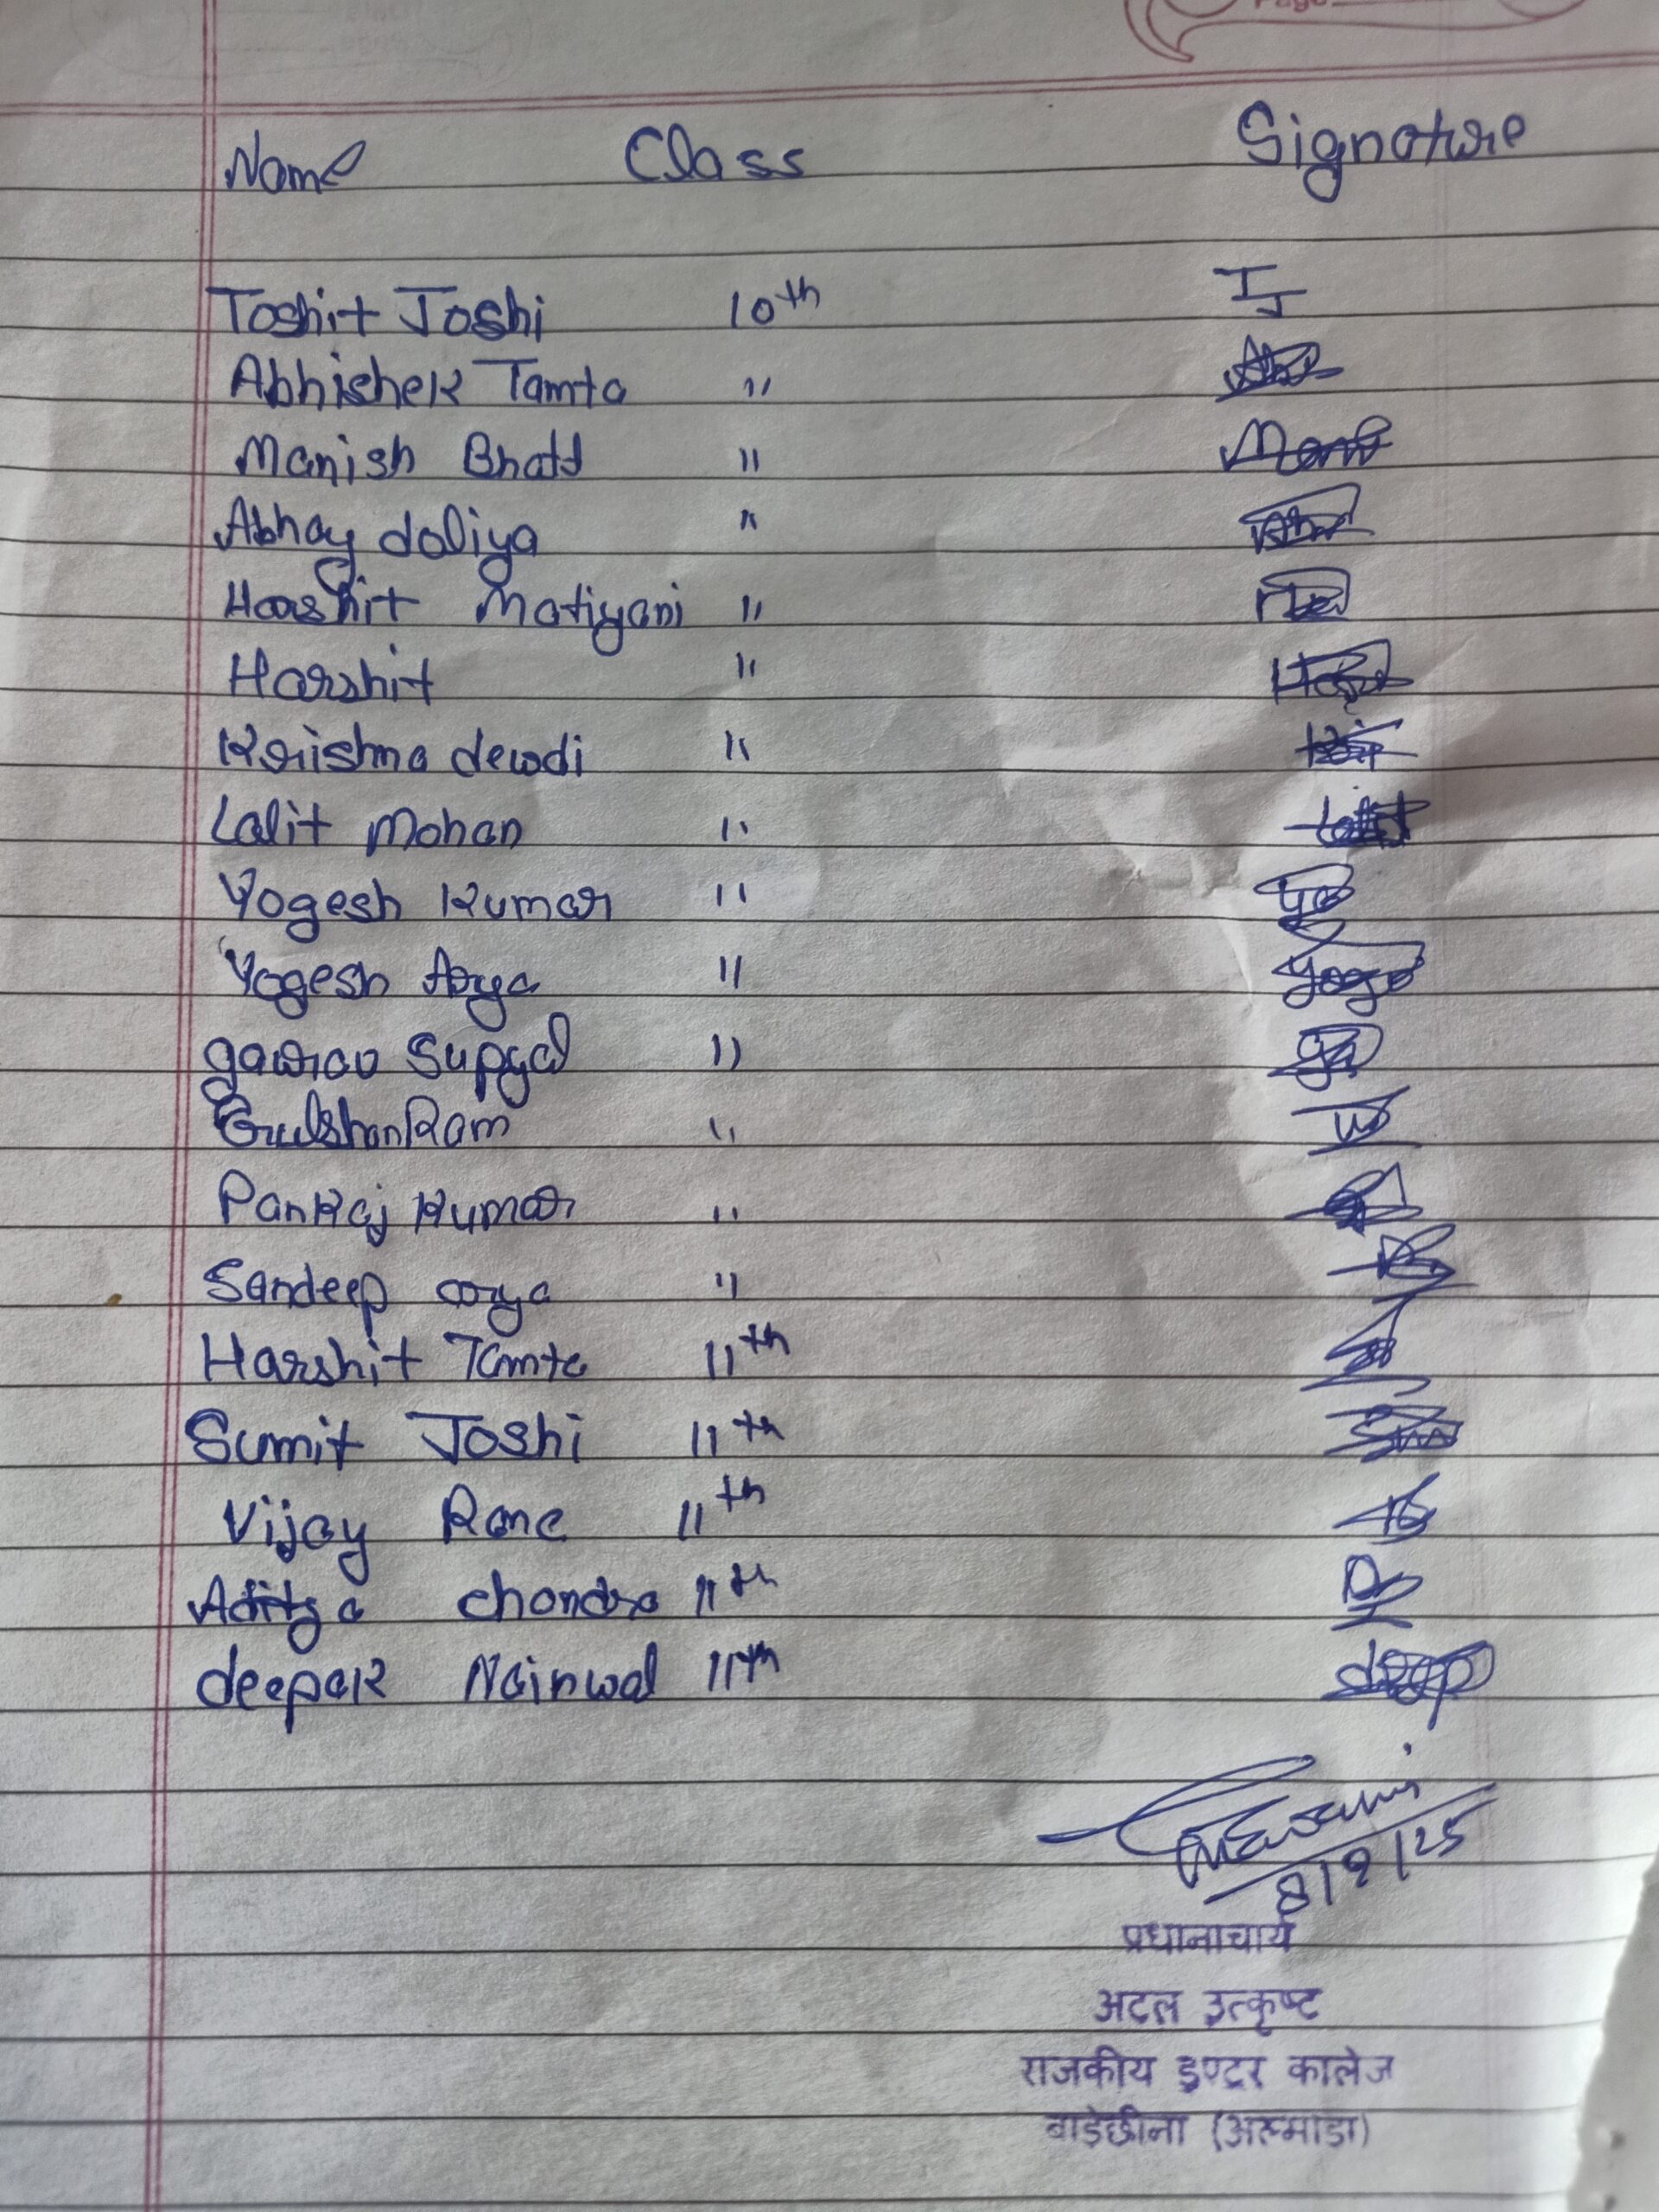 Page
Name Class Signature
Toshit Joshi 10th TJ
Abhishek Tamta "
Manish Bhatt "
Abhay daliya "
Harshit Matiyani "
Harshit "
Krishna dewdi "
Lalit Mohan " Lalit
Yogesh Kumar "
Yogesh Arya "
gaurav Supyal "
Gulshan Ram "
Pankaj Kumar "
Sandeep arya "
Harshit Tamta 11th
Sumit Joshi 11th
Vijay Rana 11th
Aditya chandra 11th
deepak Nainwal 11th deep
8/9/25
प्रधानाचार्य
अटल उत्कृष्ट
राजकीय इण्टर कालेज
बाड़ेछीना (अल्मोडा)